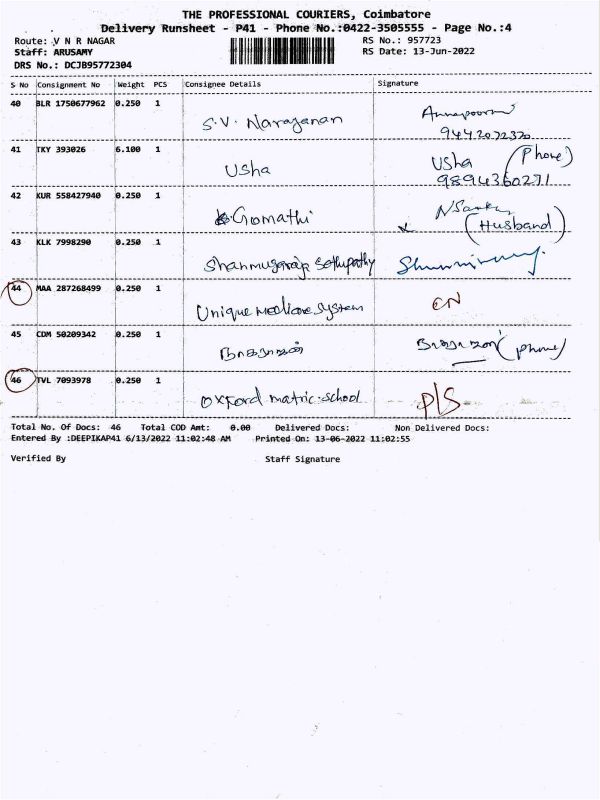 THE PROFESSIONAL COURIERS, Coimbatore
Delivery Runsheet - P41 - Phone No.:0422-3505555 - Page No.:4
Route: V N R NAGAR RS No.: 957723
Staff: ARUSAMY RS Date: 13-Jun-2022
DRS No.: DCJB95772304
S No Consignment No Weight PCS Consignee Details Signature
40 BLR 1750677962 0.250 1 S.V. Narayanan
41 TKY 393026 6.100 1 Usha Usha (Phone)
9894360271
42 KUR 558427940 0.250 1 Gomathi (Husband)
43 KLK 7998290 0.250 1
44 MAA 287268499 0.250 1 Unique System CN
45 CDM 50209342 0.250 1 (phone)
46 TVL 7093978 0.250 1 Oxford matric.school P/S
Total No. Of Docs: 46 Total COD Amt: 0.00 Delivered Docs: Non Delivered Docs:
Entered By :DEEPIKAP41 6/13/2022 11:02:48 AM Printed On: 13-06-2022 11:02:55
Verified By Staff Signature